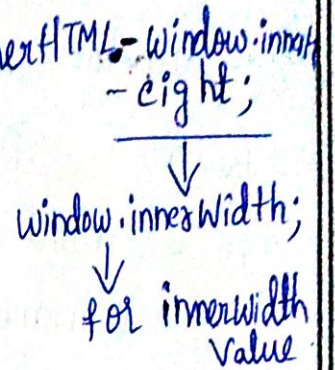 erHTML=window.innerH
-eight;
window.innerWidth;
for innerwidth
value